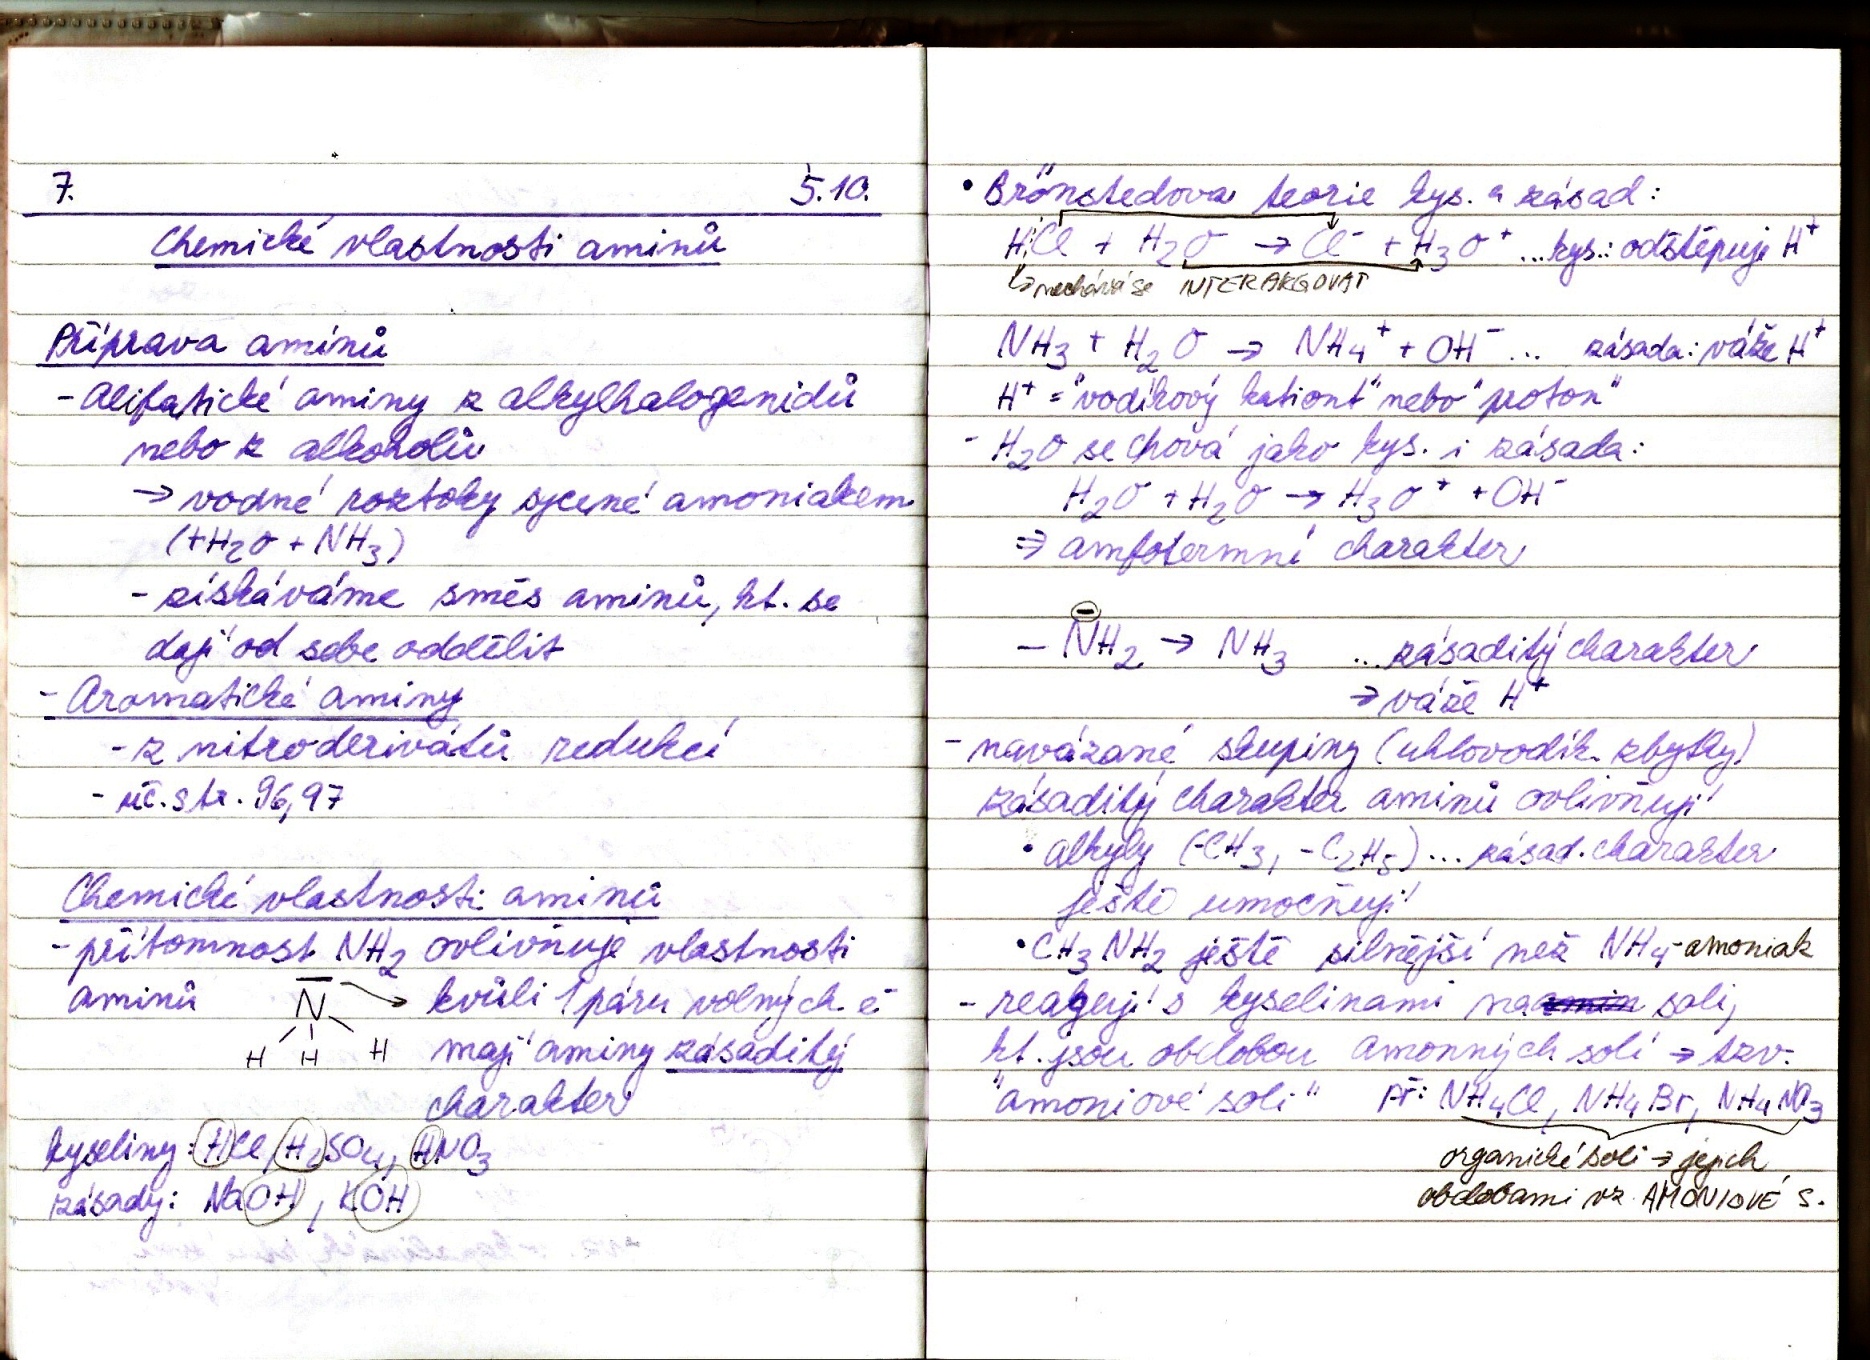 7. 5.10.
Chemické vlastnosti aminů
Příprava aminů
- Alifatické aminy z alkylhalogenidů
nebo z alkoholů
→ vodné roztoky sycené amoniakem
(+H₂O + NH₃)
- získáváme směs aminů, kt. se
dají od sebe oddělit
- Aromatické aminy
- z nitroderivátů redukcí
- uč. str. 96,97
Chemické vlastnosti aminů
- přítomnost NH₂ ovlivňuje vlastnosti
aminů N → kvůli 1 páru volných e⁻
H H H mají aminy zásaditý
charakter
kyseliny: HCl, H₂SO₄, HNO₃
zásady: NaOH, KOH
• Brőnstedova teorie kys. a zásad:
HCl + H₂O → Cl⁻ + H₃O⁺ ...kys.: odštěpuje H⁺
↳ nechává se INTERAGOVAT
NH₃ + H₂O → NH₄⁺ + OH⁻ ... zásada: váže H⁺
H⁺ = "vodíkový kationt" nebo "proton"
- H₂O se chová jako kys. i zásada:
H₂O + H₂O → H₃O⁺ + OH⁻
⇒ amfotermní charakter
⊖
- NH₂ → NH₃ ...zásaditý charakter
→ váže H⁺
- navázané skupiny (uhlovodík. zbytky)
zásaditý charakter aminů ovlivňují
• alkyly (-CH₃, -C₂H₅) ... zásad. charakter
ještě umocňují
• CH₃NH₂ ještě silnější než NH₄ - amoniak
- reagují s kyselinami na soli,
kt. jsou obdobou amonných solí → tzv.
"amoniové soli" Př: NH₄Cl, NH₄Br, NH₄NO₃
organické soli → jejich
obdobami vz. AMONIOVÉ S.